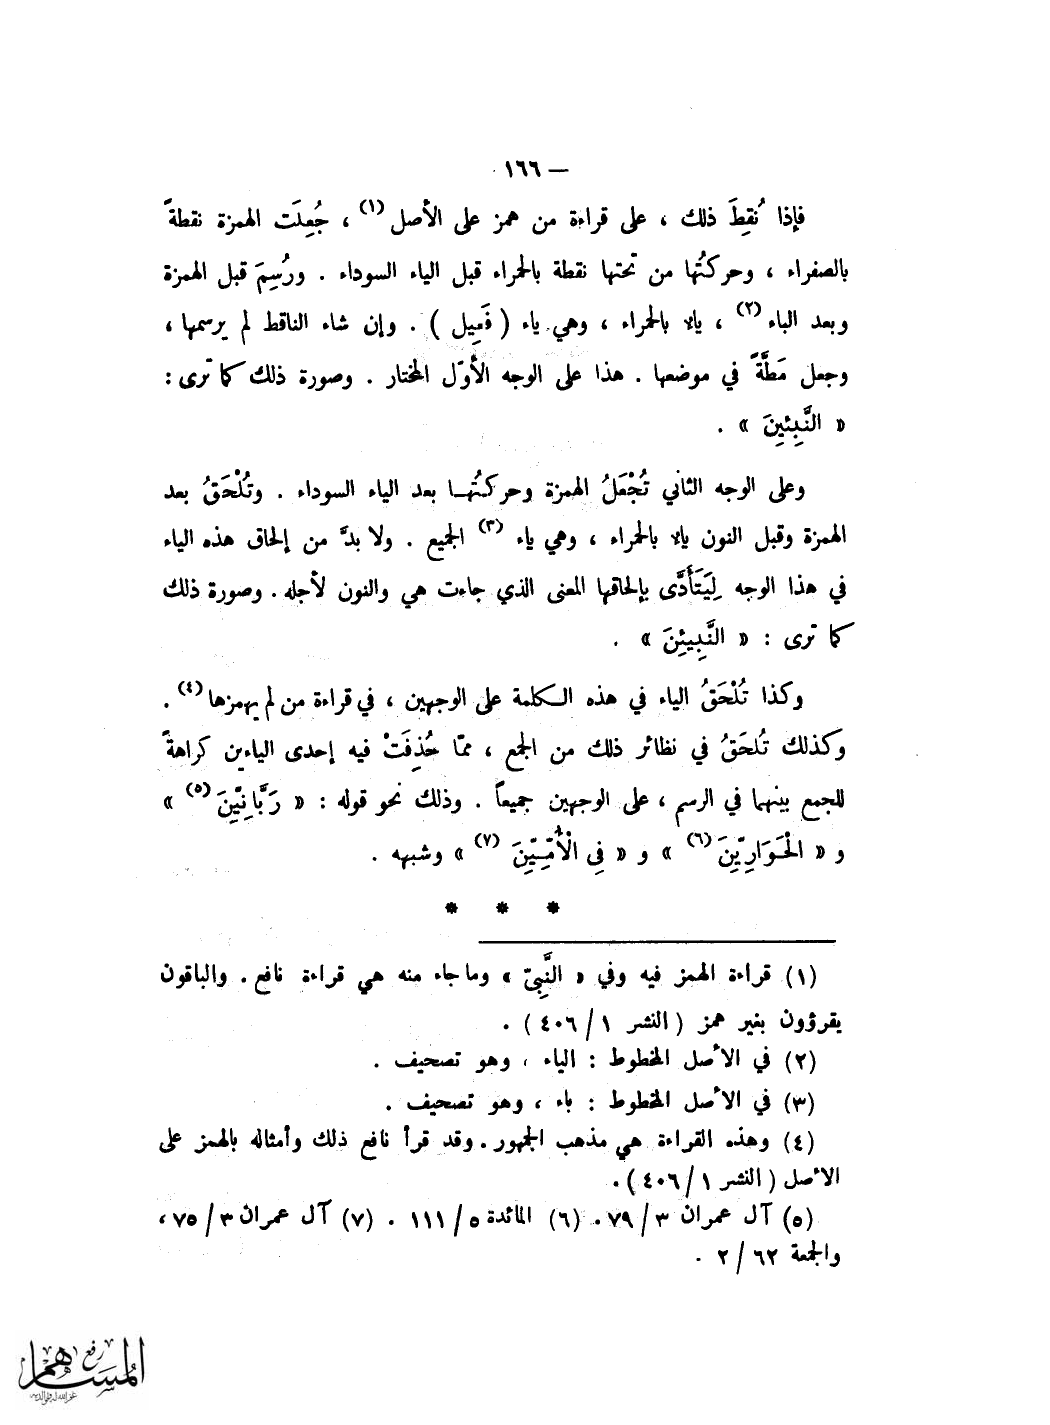 — ١٦٦
فإذا نُقِطَ ذلك ، على قراءة من همز على الأصل (١) ، جُعِلَت الهمزة نقطةً
بالصفراء ، وحركتُها من تحتها نقطة بالحمراء قبل الياء السوداء . ورُسِمَ قبل الهمزة
وبعد الباء (٢) ، ياءٌ بالحمراء ، وهي ياء ( فَعِيل ) . وإن شاء الناقط لم يرسمها ،
وجعل مَطَّةً في موضعها . هذا على الوجه الأوّل المختار . وصورة ذلك كما ترى :
« النَّبِئينَ » .
وعلى الوجه الثاني تُجْعَلُ الهمزة وحركتُها بعد الياء السوداء . وتُلْحَقُ بعد
الهمزة وقبل النون ياءٌ بالحمراء ، وهي ياء (٣) الجميع . ولا بدَّ من إلحاق هذه الياء
في هذا الوجه لِيَتَأَدَّى بإلحاقها المعنى الذي جاءت هي والنون لأجله . وصورة ذلك
كما ترى : « النَّبِيئِنَ » .
وكذا تُلْحَقُ الياء في هذه الكلمة على الوجهين ، في قراءة من لم يهمزها (٤) .
وكذلك تُلحَقُ في نظائر ذلك من الجمع ، ممّا حُذِفَتْ فيه إحدى الياءين كراهةً
للجمع بينهما في الرسم ، على الوجهين جميعاً . وذلك نحو قوله : « رَبَّانِيّنَ (٥) »
و « الْحَوَارِيّنَ (٦) » و « فِى الْأُمِّيّنَ (٧) » وشبهه .
* * *
(١) قراءة الهمز فيه وفي « النَّبِيّ » وما جاء منه هي قراءة نافع . والباقون
يقرؤون بغير همز ( النشر ١ / ٤٠٦ ) .
(٢) في الأصل المخطوط : الياء ، وهو تصحيف .
(٣) في الأصل المخطوط : باء ، وهو تصحيف .
(٤) وهذه القراءة هي مذهب الجمهور . وقد قرأ نافع ذلك وأمثاله بالهمز على
الأصل ( النشر ١ / ٤٠٦ ) .
(٥) آل عمران ٣ / ٧٩ . (٦) المائدة ٥ / ١١١ . (٧) آل عمران ٣ / ٧٥ ،
والجمعة ٦٢ / ٢ .